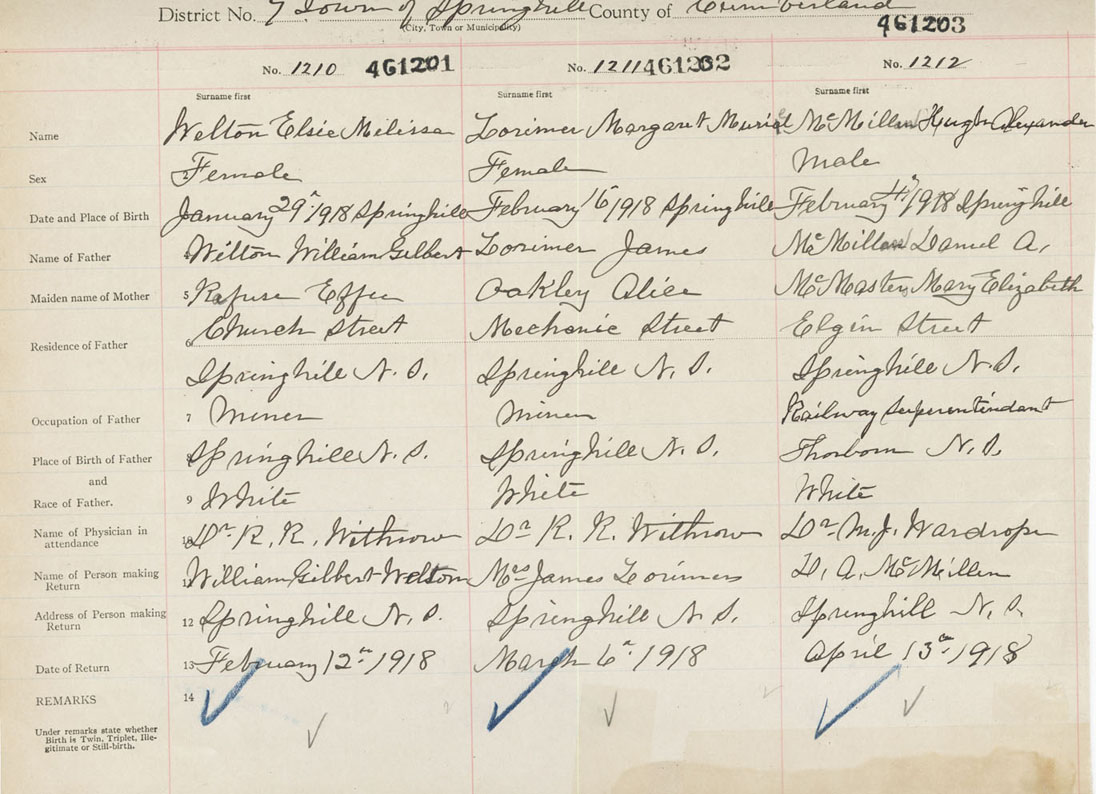 District No. 7 Town of Springhill County of Cumberland
(City, Town or Municipality)
461203
No. 1210 461201 No. 1211 461202 No. 1212
Surname first Surname first Surname first
Name Welton Elsie Melissa Lorimer Margaret Muriel McMillan Hugh Alexander
Sex 2 Female Female Male
Date and Place of Birth January 29th 1918 Springhill February 16th 1918 Springhill February 4th 1918 Springhill
Name of Father 4 Wilton William Gilbert Lorimer James McMillan Daniel A.
Maiden name of Mother 5 Rafuse Effie Oakley Alice McMasters Mary Elizabeth
Residence of Father 6 Church Street Mechanic Street Elgin Street
Springhill N.S. Springhill N.S. Springhill N.S.
Occupation of Father 7 Miner Miner Railway Superentindant
Place of Birth of Father 8 Springhill N.S. Springhill N.S. Thorborn N.S.
and
Race of Father. 9 White White White
Name of Physician in attendance 10 Dr R. R. Withrow Dr R. R. Withrow Dr M.J. Wardrope
Name of Person making Return 11 William Gilbert Welton Mrs James Lorimers D. A. McMillen
Address of Person making Return 12 Springhill N.S. Springhill N.S. Springhill N.S.
Date of Return 13 February 12th 1918 March 6th 1918 April 13th 1918
REMARKS 14
Under remarks state whether
Birth is Twin, Triplet, Ille-
gitimate or Still-birth.